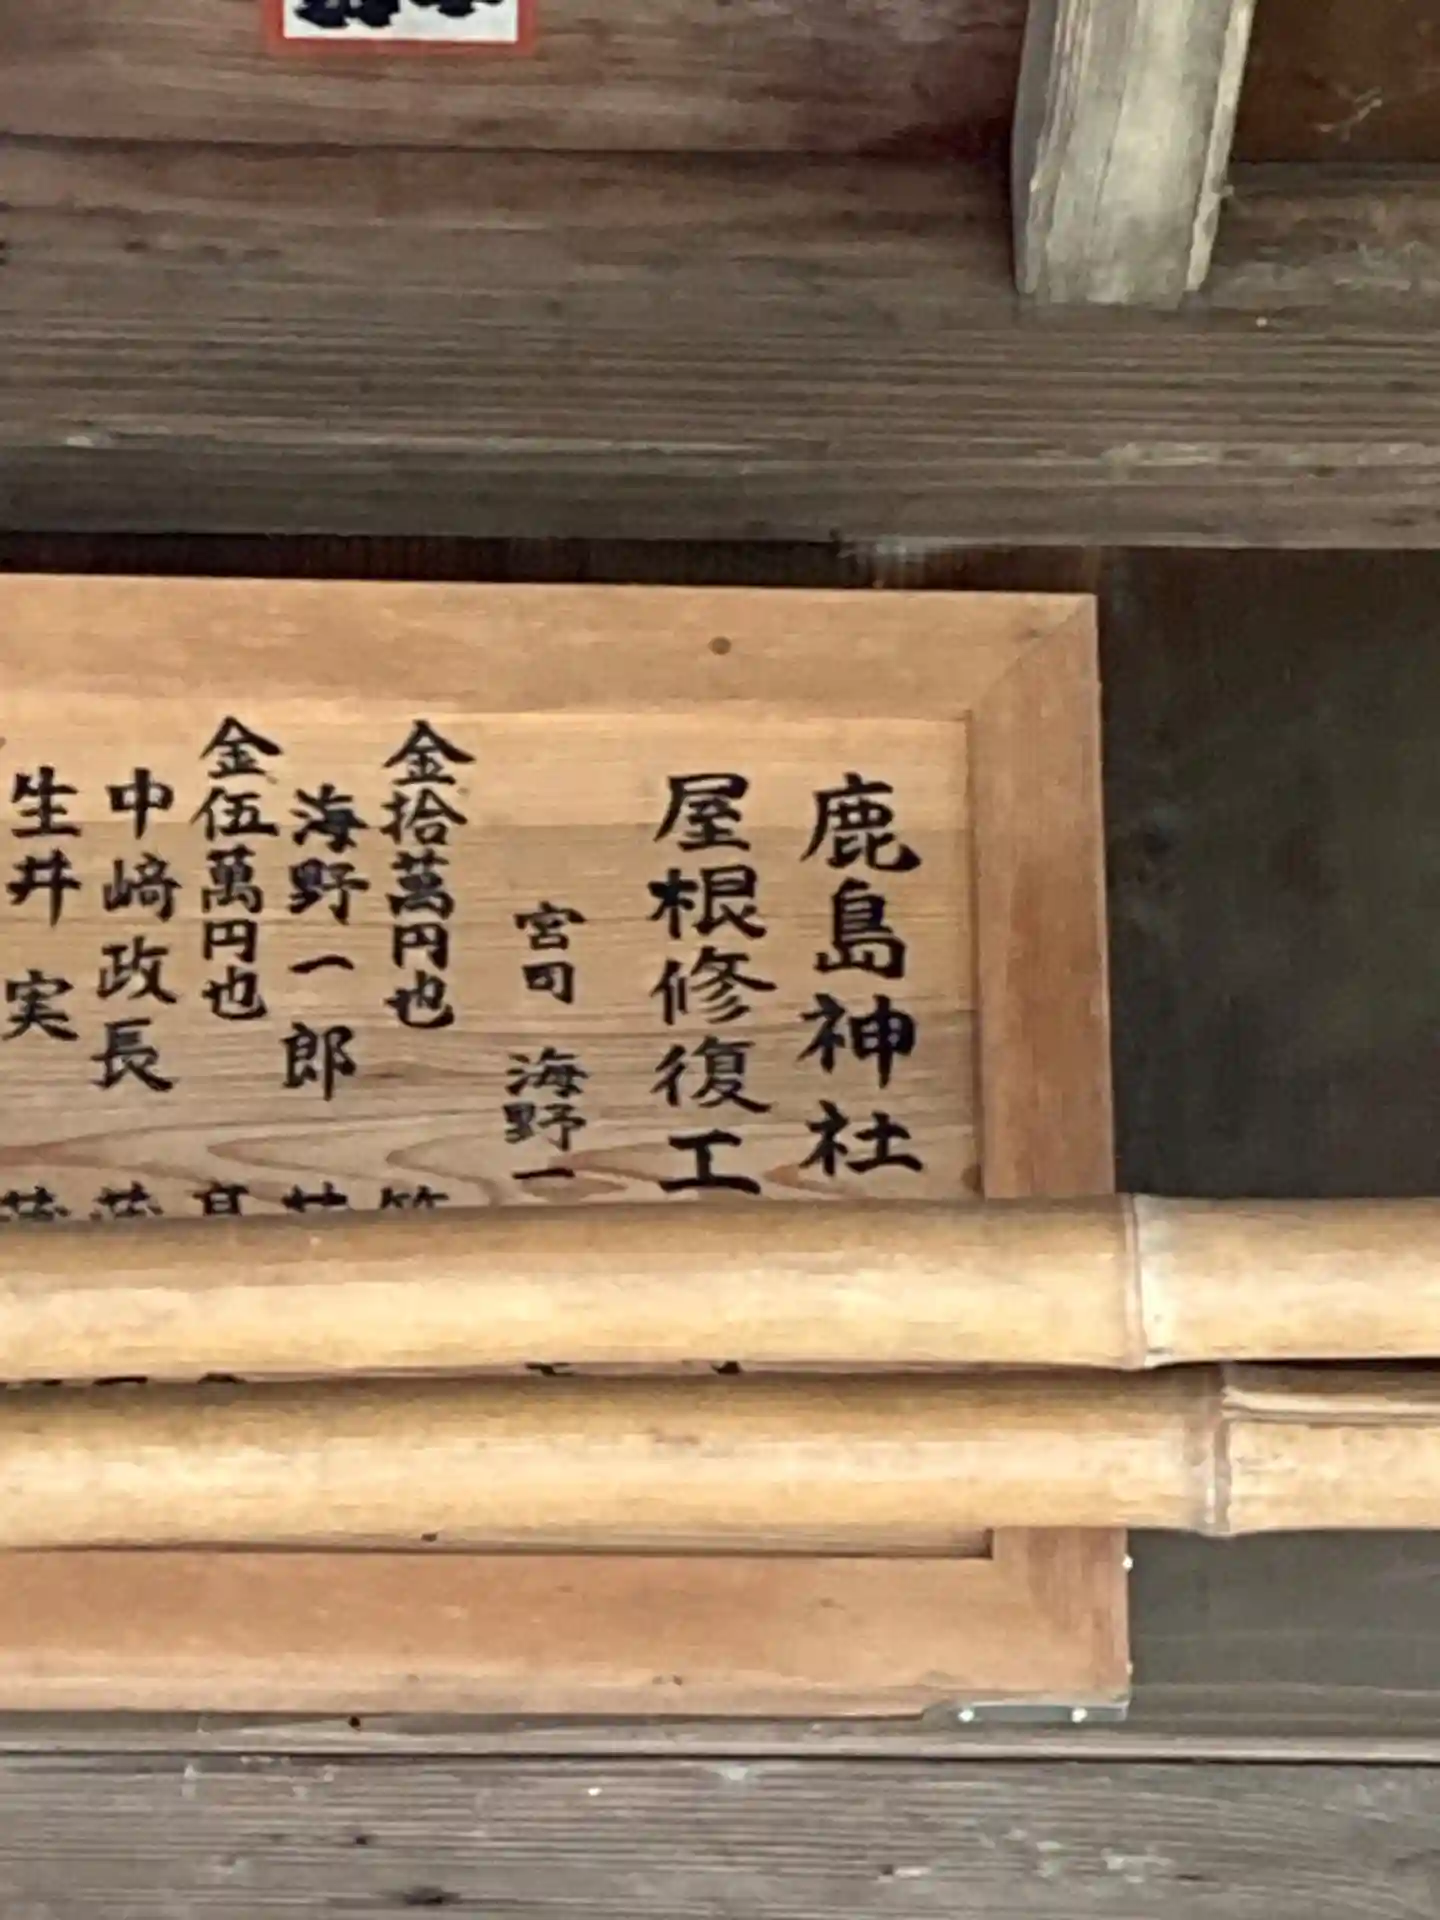 鹿島神社
屋根修復工
宮司 海野一
金拾萬円也
海野一郎
金伍萬円也
中﨑政長
生井 実